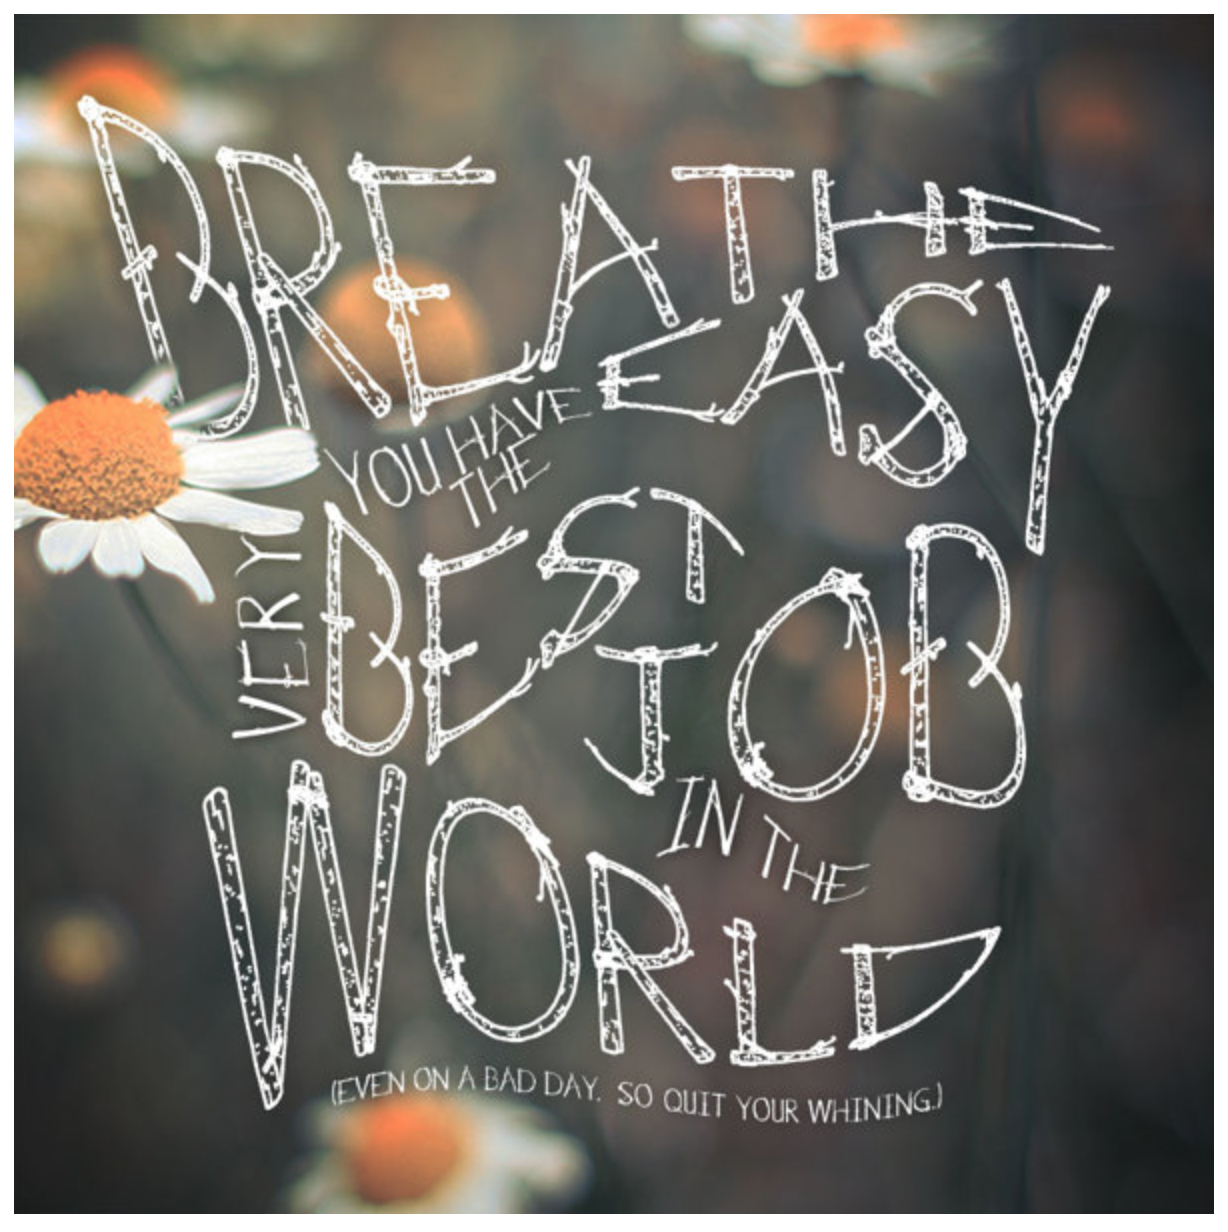 BREATHE
EASY
YOU HAVE
THE
VERY
BEST
JOB
IN THE
WORLD
(EVEN ON A BAD DAY. SO QUIT YOUR WHINING.)